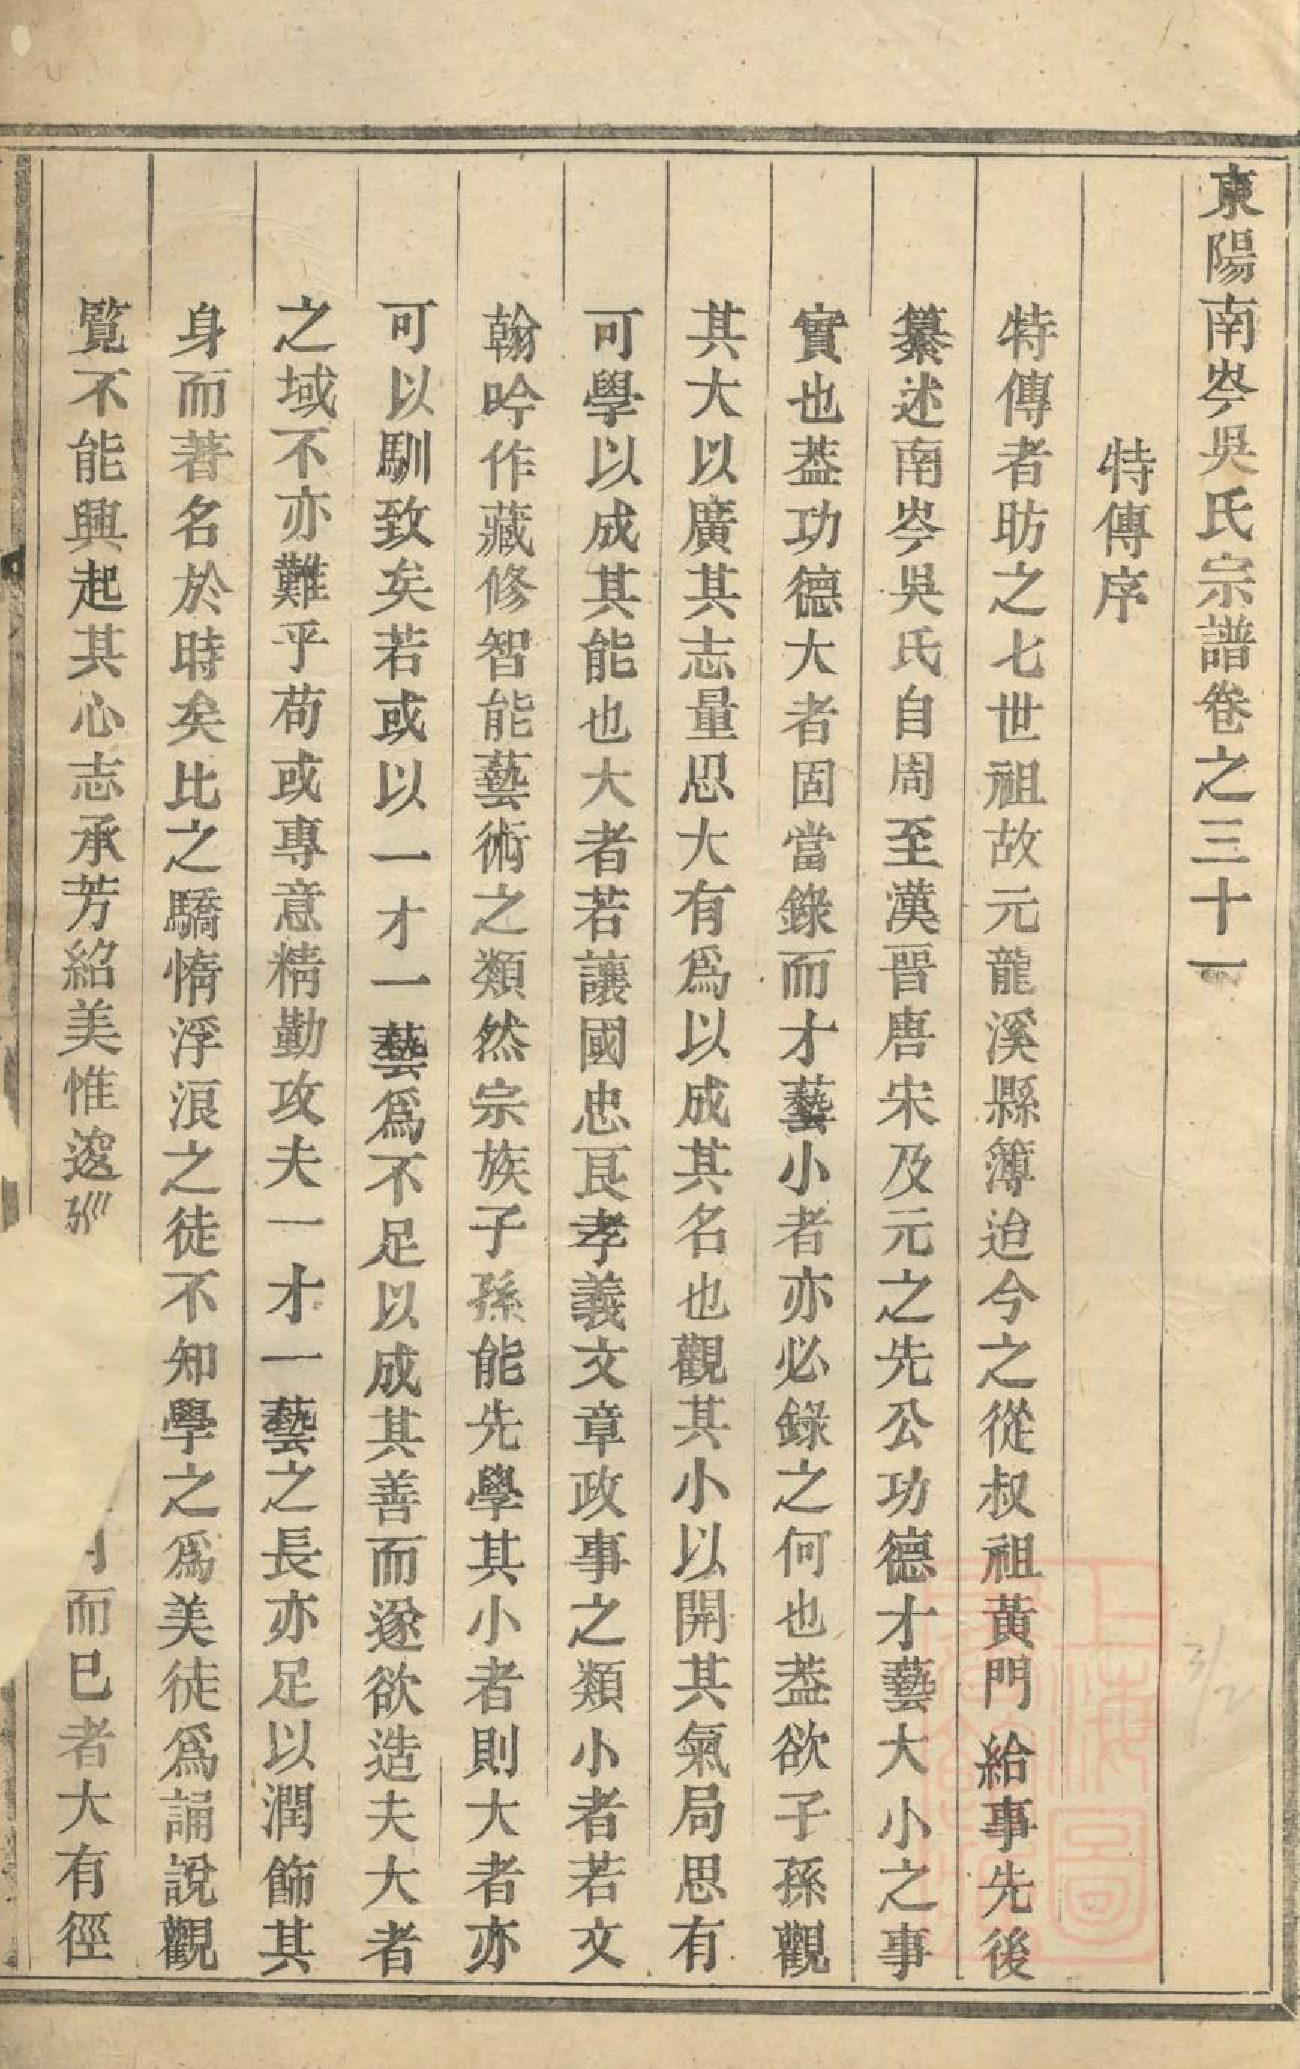 東陽南岑吳氏宗譜卷之三十一
特傳序
特傳者昉之七世祖故元龍溪縣簿迨今之從叔祖黃門給事先後
纂述南岑吳氏自周至漢晉唐宋及元之先公功德才藝大小之事
實也葢功德大者固當錄而才藝小者亦必錄之何也葢欲子孫觀
其大以廣其志量思大有爲以成其名也觀其小以開其氣局思有
可學以成其能也大者若讓國忠良孝義文章政事之類小者若文
翰吟作藏修智能藝術之類然宗族子孫能先學其小者則大者亦
可以馴致矣若或以一才一藝爲不足以成其善而遂欲造夫大者
之域不亦難乎苟或專意精勤攻夫一才一藝之長亦足以潤飾其
身而著名於時矣比之驕惰浮浪之徒不知學之爲美徒爲誦說觀
覽不能興起其心志承芳紹美惟逡巡而已者大有徑
上海圖
31/2